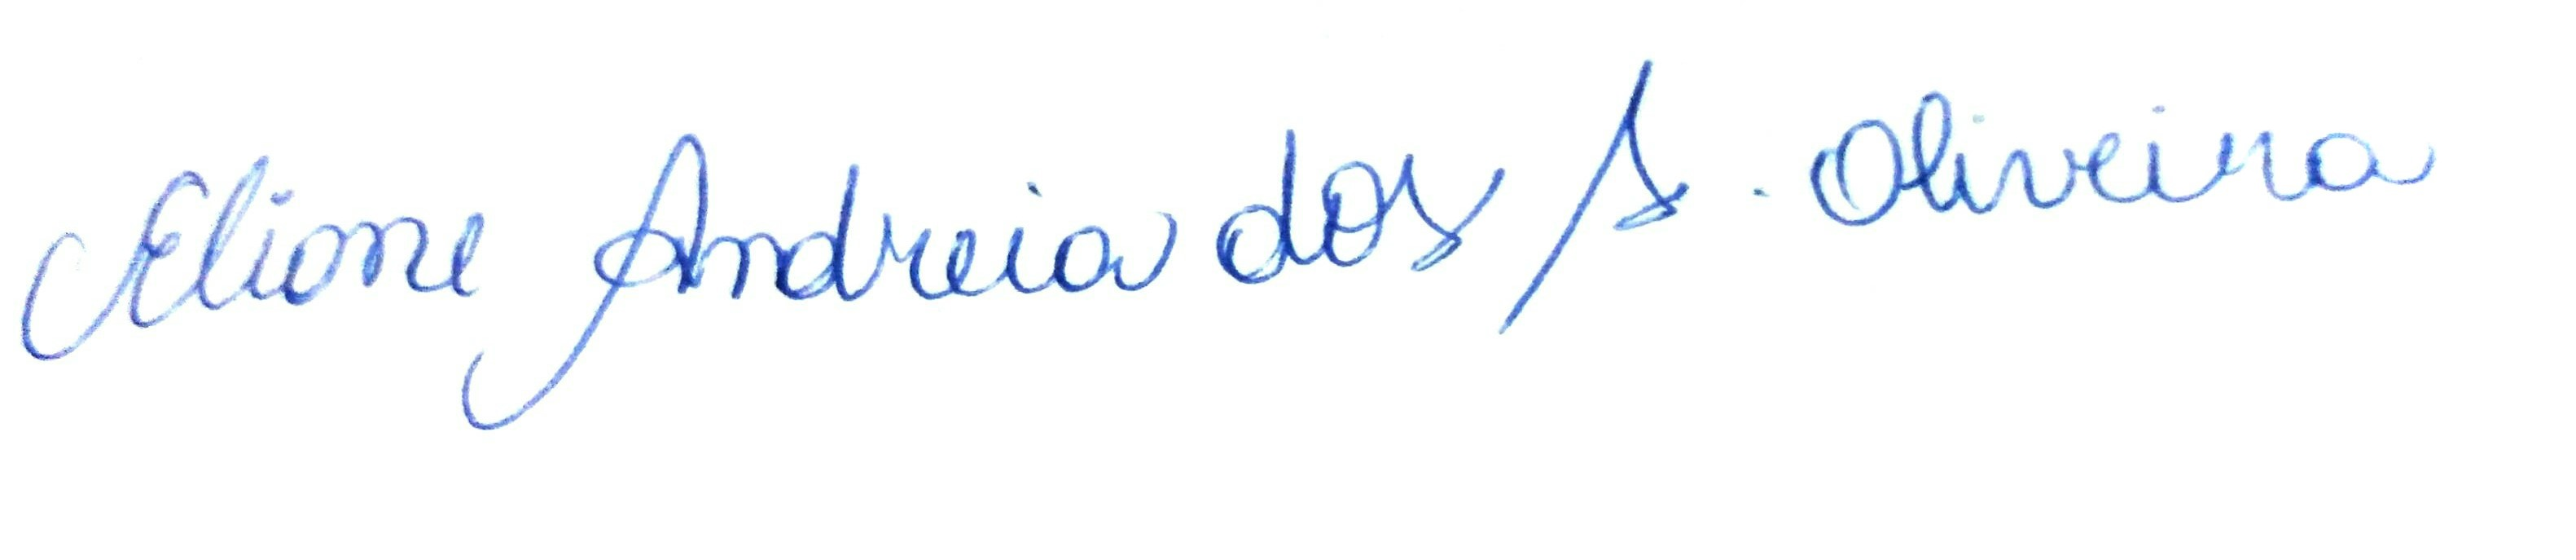 Eliane Andreia dos S. Oliveira